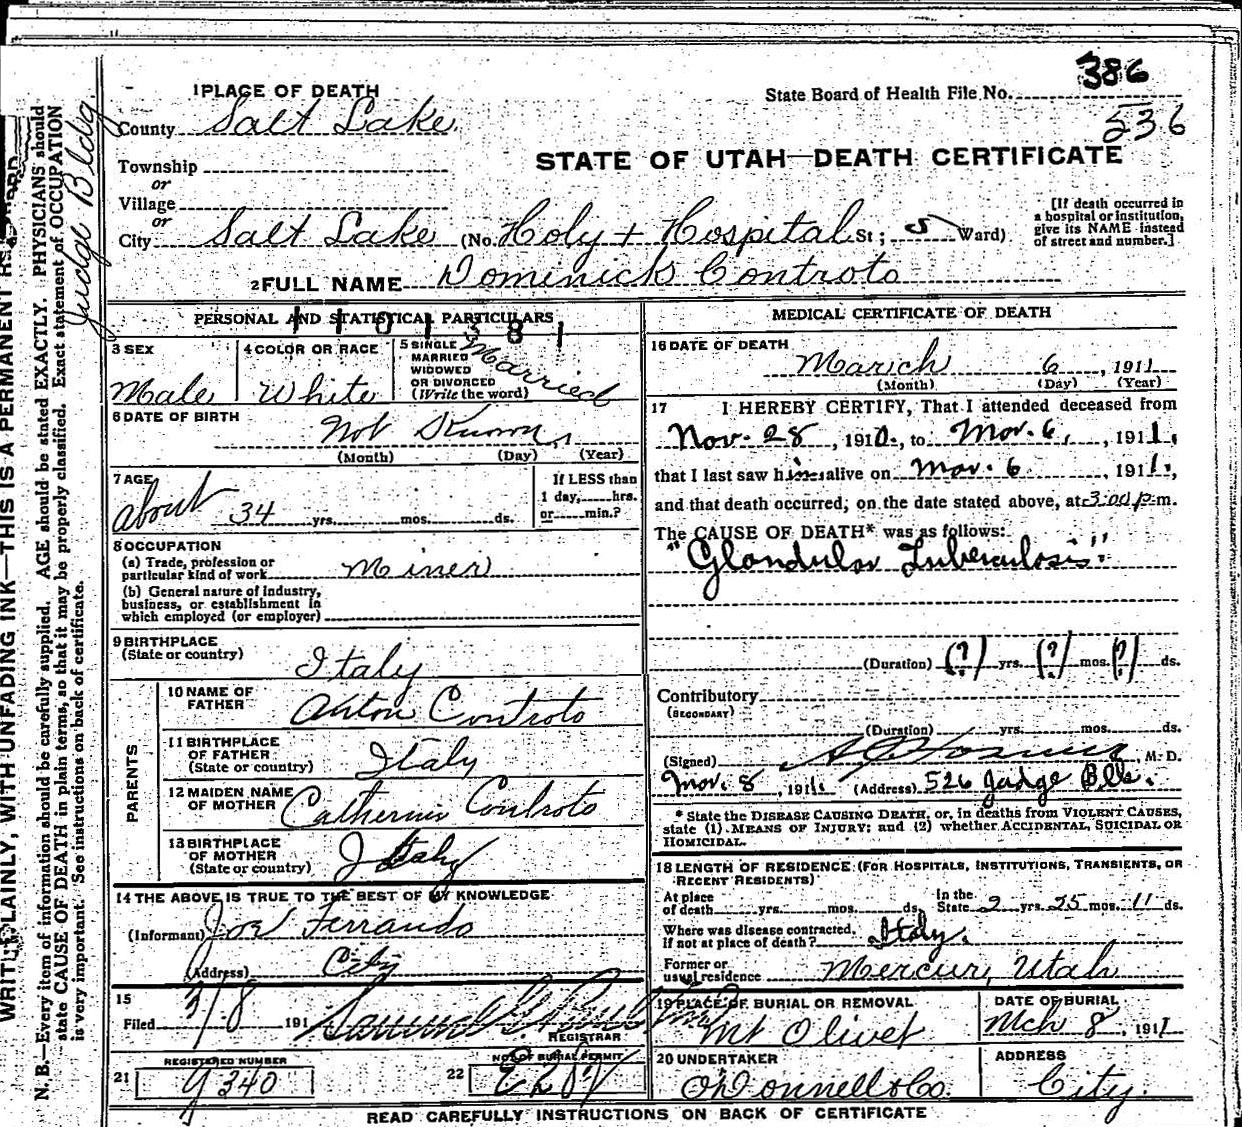 386
State Board of Health File No.
536
1 PLACE OF DEATH
County Salt Lake
STATE OF UTAH—DEATH CERTIFICATE
Township
or
Village
or
City Salt Lake (No. Holy + Hospital St; 5 Ward)
[If death occurred in
a hospital or institution,
give its NAME instead
of street and number.]
2 FULL NAME Dominick Controto
PERSONAL AND STATISTICAL PARTICULARS
3 SEX
Male
4 COLOR OR RACE
White
5 SINGLE
MARRIED
WIDOWED
OR DIVORCED
(Write the word)
Married
6 DATE OF BIRTH
Not Known
(Month) (Day) (Year)
7 AGE
about 34 yrs. mos. ds.
If LESS than
1 day, hrs.
or min.?
8 OCCUPATION
(a) Trade, profession or
particular kind of work Miner
(b) General nature of industry,
business, or establishment in
which employed (or employer)
9 BIRTHPLACE
(State or country)
Italy
PARENTS
10 NAME OF
FATHER
Anton Controto
11 BIRTHPLACE
OF FATHER
(State or country)
Italy
12 MAIDEN NAME
OF MOTHER
Catherine Controto
13 BIRTHPLACE
OF MOTHER
(State or country)
Italy
14 THE ABOVE IS TRUE TO THE BEST OF MY KNOWLEDGE
(Informant) Joe Ferrando
(Address) City
15
Filed 3/8 191
REGISTRAR
REGISTERED NUMBER
21 9340
NO. OF BURIAL PERMIT
22
MEDICAL CERTIFICATE OF DEATH
16 DATE OF DEATH
March 6, 1911
(Month) (Day) (Year)
17 I HEREBY CERTIFY, That I attended deceased from
Nov. 28, 1910, to Mar. 6, 1911,
that I last saw him alive on Mar. 6, 1911,
and that death occurred, on the date stated above, at 3:00 p.m.
The CAUSE OF DEATH* was as follows:
"Glandular Tuberculosis"
(Duration) (?) yrs. (?) mos. (?) ds.
Contributory
(SECONDARY)
(Duration) yrs. mos. ds.
(Signed) M. D.
Mar. 8, 1911 (Address) 526 Judge Blk.
* State the DISEASE CAUSING DEATH, or, in deaths from VIOLENT CAUSES,
state (1) MEANS OF INJURY; and (2) whether ACCIDENTAL, SUICIDAL OR
HOMICIDAL.
18 LENGTH OF RESIDENCE (FOR HOSPITALS, INSTITUTIONS, TRANSIENTS, OR
RECENT RESIDENTS)
At place
of death yrs. mos. ds.
In the
State 2 yrs. 25 mos. 11 ds.
Where was disease contracted,
if not at place of death? Italy.
Former or
usual residence Mercur, Utah
19 PLACE OF BURIAL OR REMOVAL
Mt Olivet
DATE OF BURIAL
Mch 8, 1911
20 UNDERTAKER
O'Donnell & Co.
ADDRESS
City.
READ CAREFULLY INSTRUCTIONS ON BACK OF CERTIFICATE
WRITE PLAINLY, WITH UNFADING INK—THIS IS A PERMANENT
N. B.—Every item of information should be carefully supplied. AGE should be stated EXACTLY. PHYSICIANS should
state CAUSE OF DEATH in plain terms, so that it may be properly classified. Exact statement of OCCUPATION
is very important. See instructions on back of certificate.
Judge Bldg.